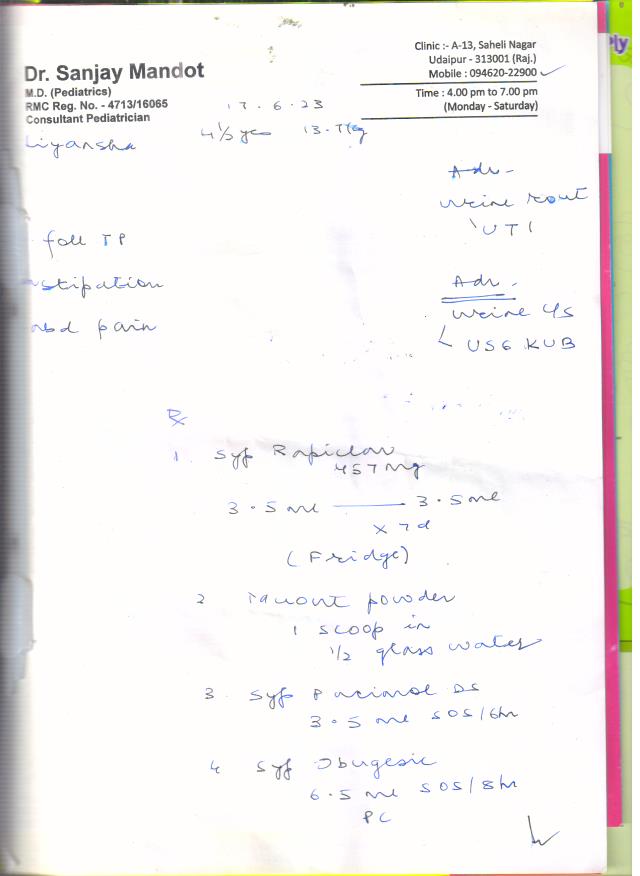 Dr. Sanjay Mandot
M.D. (Pediatrics)
RMC Reg. No. - 4713/16065
Consultant Pediatrician
Clinic :- A-13, Saheli Nagar
Udaipur - 313001 (Raj.)
Mobile : 094620-22900
Time : 4.00 pm to 7.00 pm
(Monday - Saturday)
17.6.23
iyansha 4½ yrs 13.7kg
Adv-
urine rout
UTI
foll TP
stipation
abd pain
Adv-
urine c/s
USG KUB
Rx
1. Syp Rapiclav
457mg
3.5 ml — 3.5 ml
x 7d
(Fridge)
2 powder
1 scoop in
1/2 glass water
3. Syp Pacimol DS
3.5 ml SOS/6hr
4 Syp Ibugesic
6.5 ml SOS/8hr
PC
ply